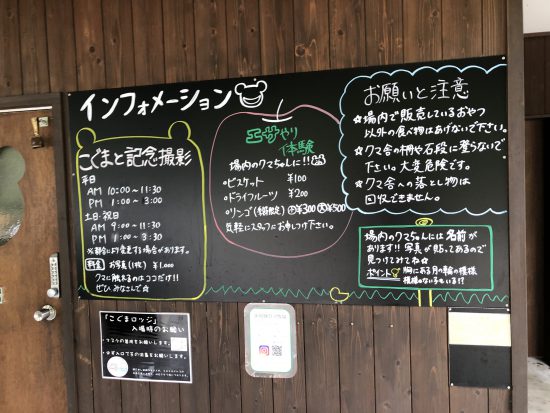 インフォメーション
こぐまと記念撮影
平日
AM 10:00〜11:30
PM 1:00〜3:00
土日・祝日
AM 9:00〜11:30
PM 1:00〜3:30
※都合により変更する場合があります。
料金 お写真(1枚) ¥1,000
クマに触れるのはココだけ!!
ぜひ みなさん☆
エサやり
体験
場内のクマちゃんに!!
・ビスケット ¥100
・ドライフルーツ ¥200
・リンゴ(数量限定) ¥300 大¥500
気軽にスタッフにお申しつけ下さい。
お願いと注意
☆場内で販売しているおやつ
以外の食べ物はあげないで下さい。
☆クマ舎の柵や石段に登らないで
下さい。大変危険です。
☆クマ舎への落とし物は
回収できません。
場内のクマちゃんには名前が
あります!! 写真が貼ってあるので
見つけてみてね☆
ポイント 胸にある月の輪の模様
模様のない子もいる!?
「こぐまロッジ」
入場時のお願い
・マスクの着用をお願いします。